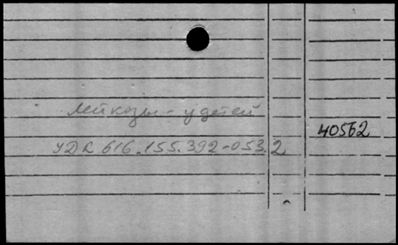 Лейкозы - у детей
40562
УДК 616.155.392-053.2